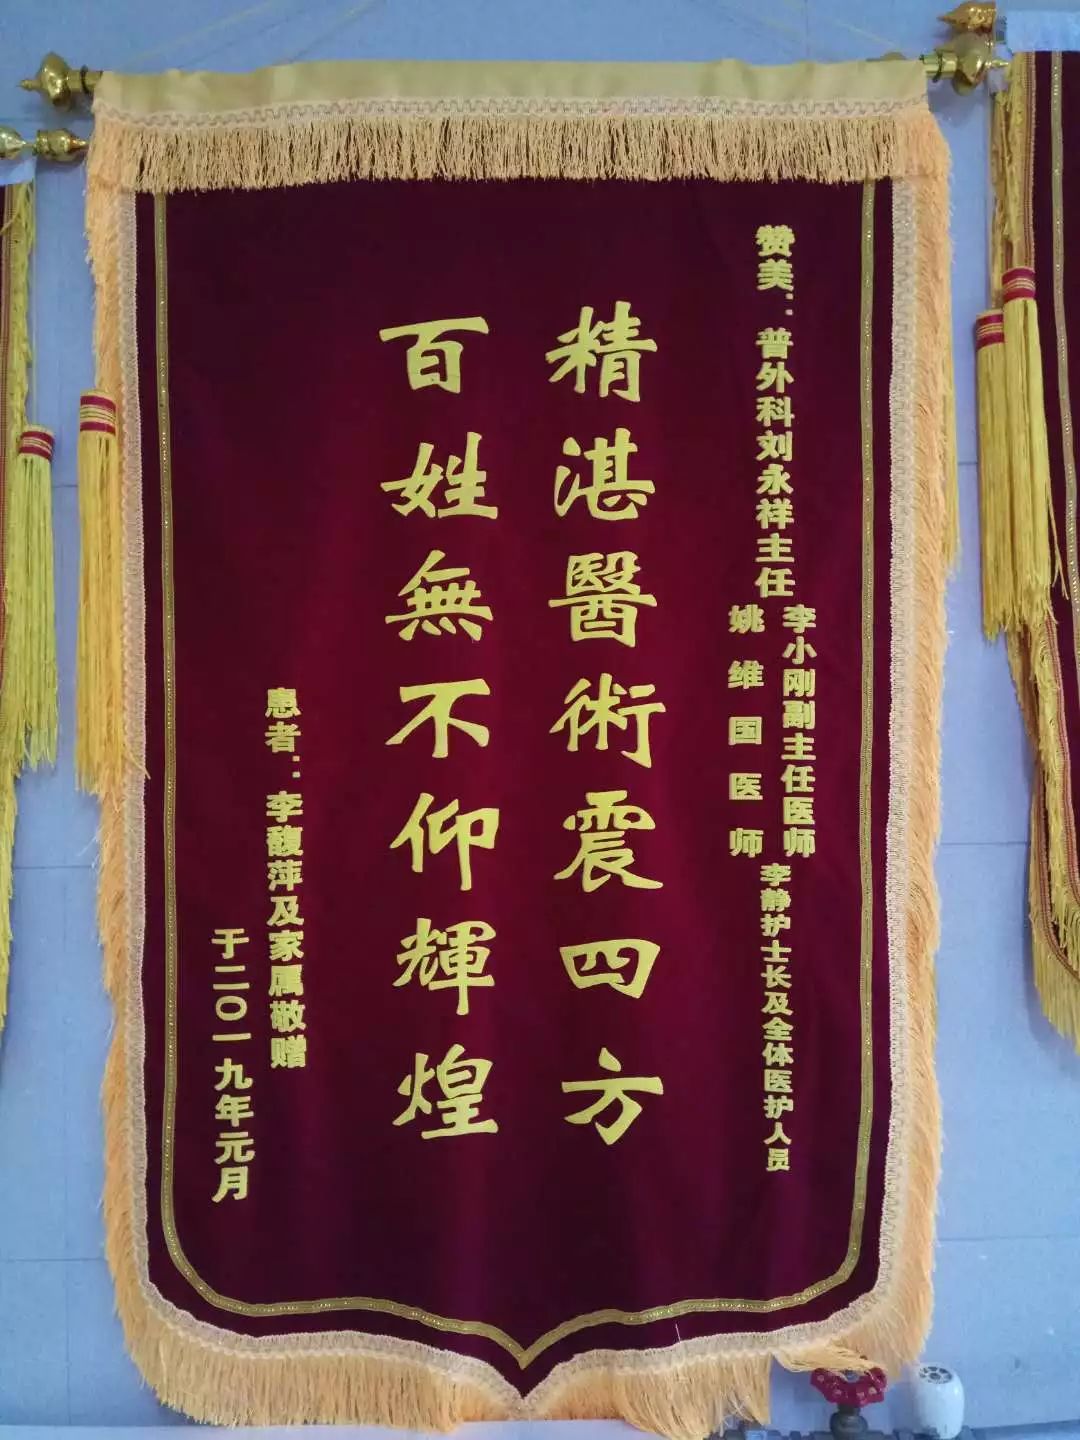 赞美：普外科刘永祥主任
李小刚副主任医师
姚维国医师
李静护士长及全体医护人员
精湛醫術震四方
百姓無不仰輝煌
患者：李馥萍及家属敬赠
于二〇一九年元月